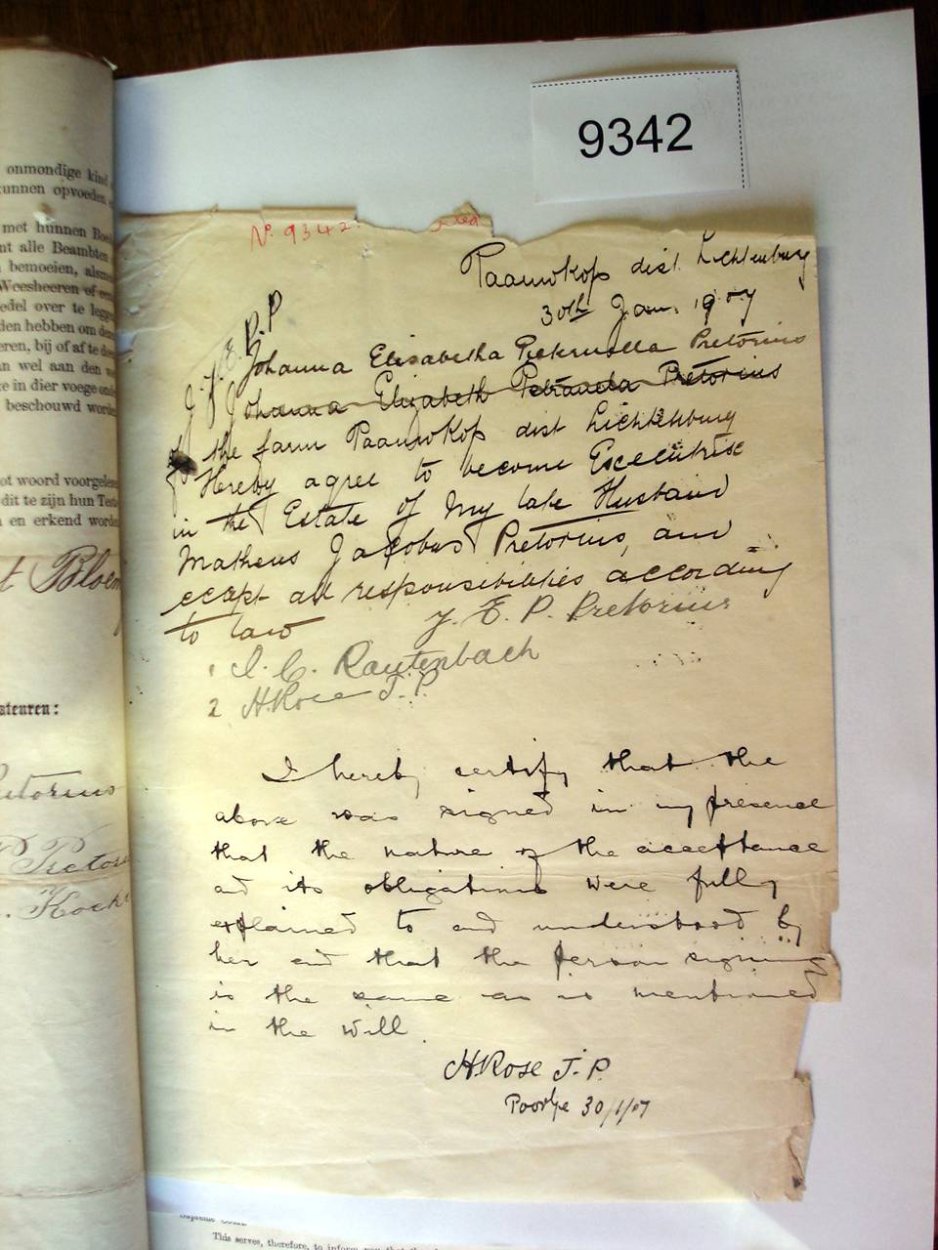 9342
No 9342
Paauwkop dist. Lichtenburg
30th Jan. 1907
J. E. P. P
Johanna Elisabetha Pieternella Pretorius
I Johanna Elizabeth Petranela Pretorius
of the farm Paauwkop dist Lichtenburg
Hereby agree to become Excecutrise
in the Estate of My late Husband
Matheus Jacobus Pretorius, and
eccept all responsibilities according
to law
J. E. P. Pretorius
1 I. C. Rautenbach
2 H Rose J. P.
I hereby certify that the
above was signed in my presence
that the nature of the acceptance
and its obligations were fully
explained to and understood by
her and that the person signing
is the same as is mentioned
in the will
H Rose J. P.
Poortje 30/1/07
onmondige kind
kunnen opvoeden
met hunnen
alle Beambten
bemoeien,
Weesheeren of
over te
den hebben om
eren, bij of af te
an wel aan den
te in dier voege
beschouwd
woord
dit te zijn hun
n en erkend
Pretorius
This serves, therefore, to inform you that the